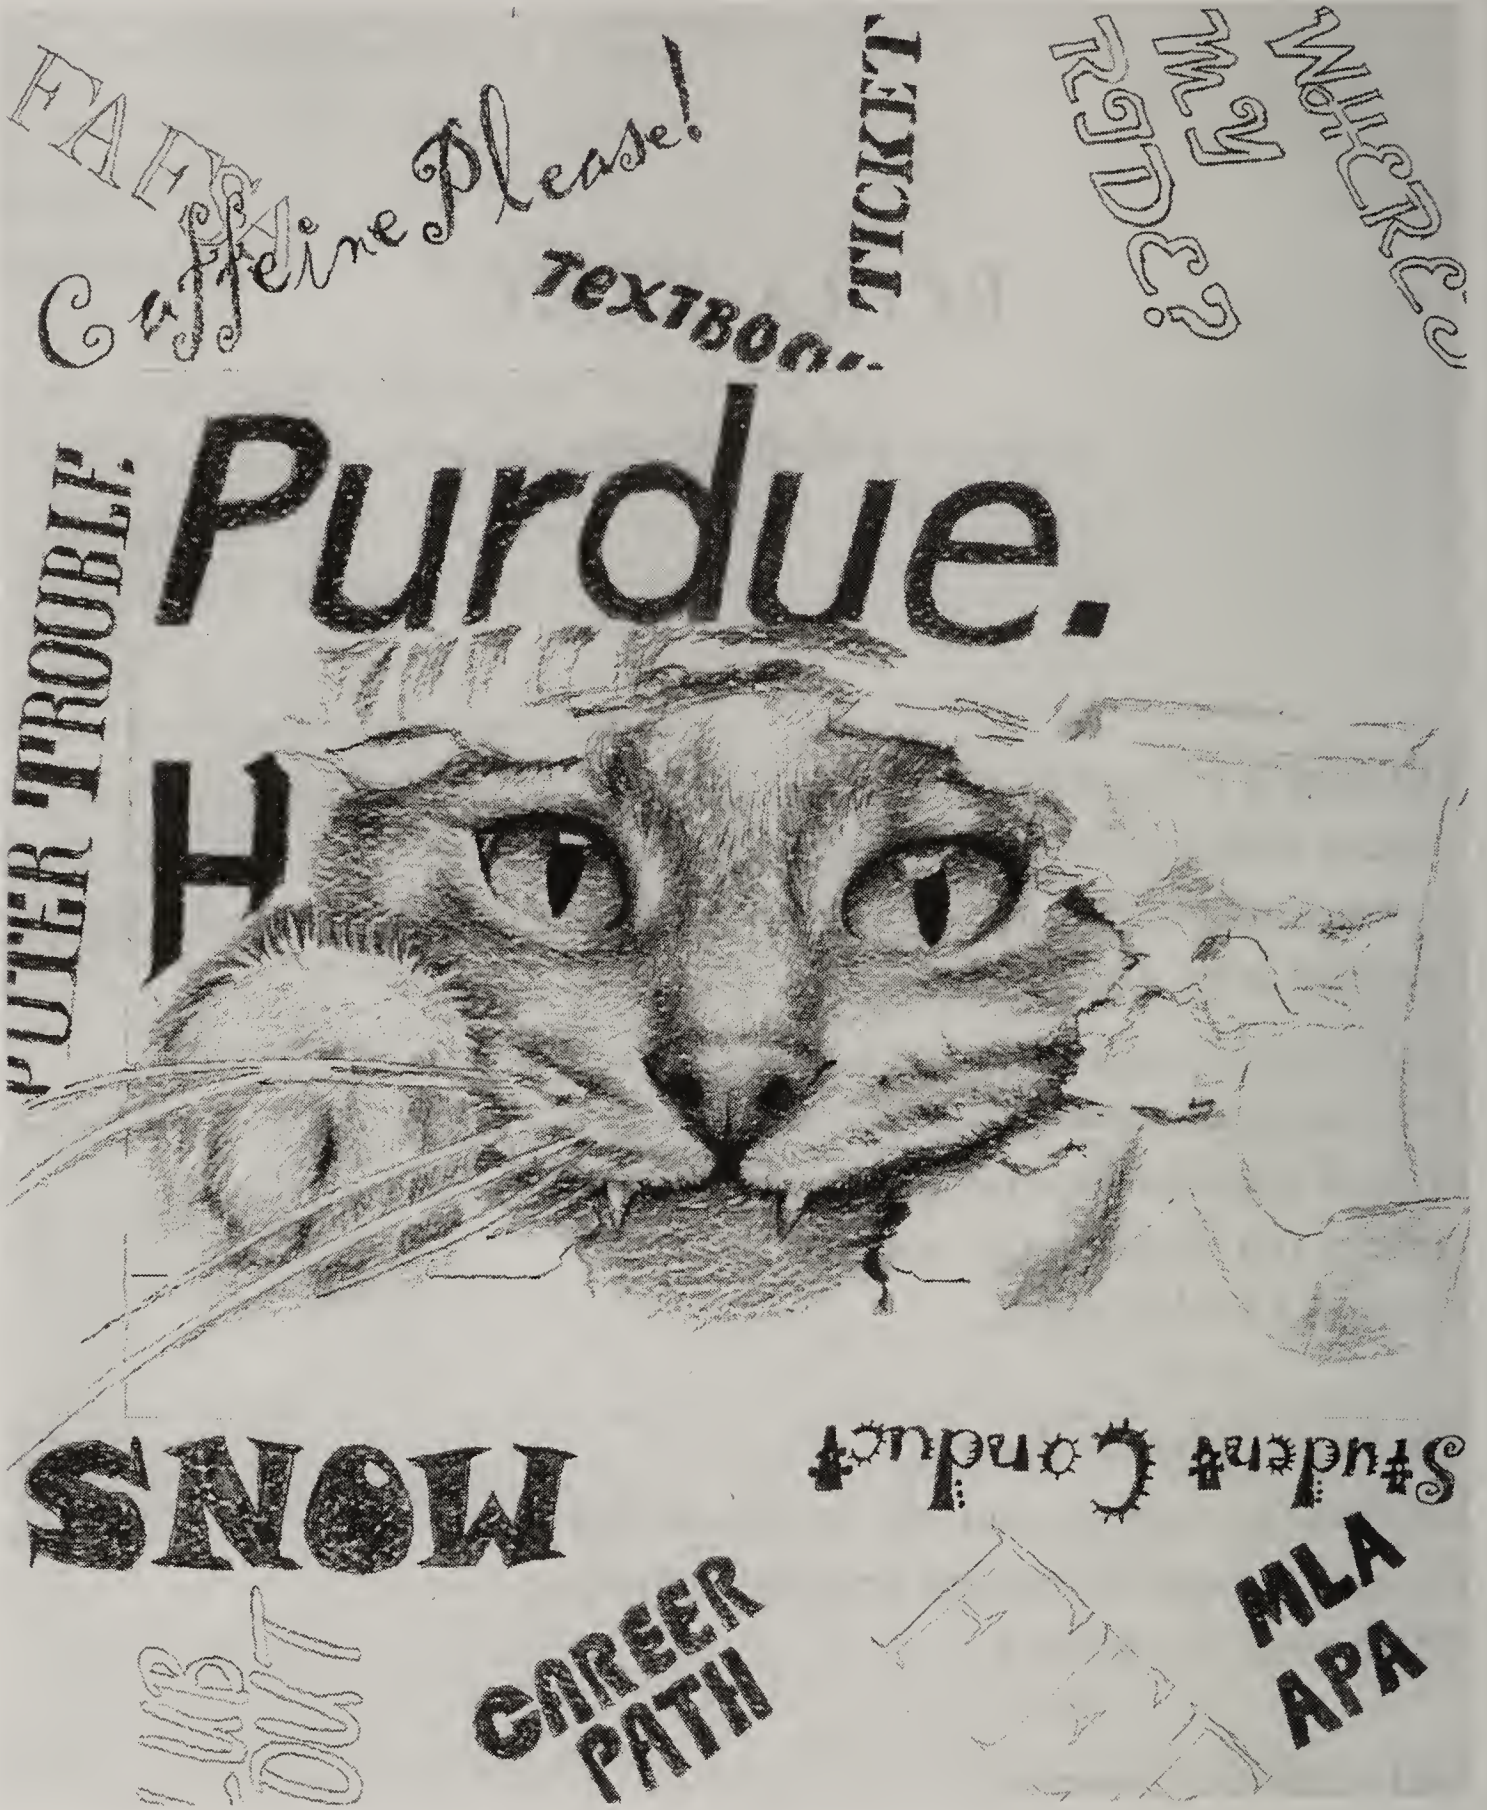 FAFSA
Caffeine Please!
TEXTBOO
TICKET
WHERE
MY
RIDE?
Purdue.
H
PUTER TROUBLE
SNOW
Student Conduct
MLA
APA
CAREER
PATH
OUT